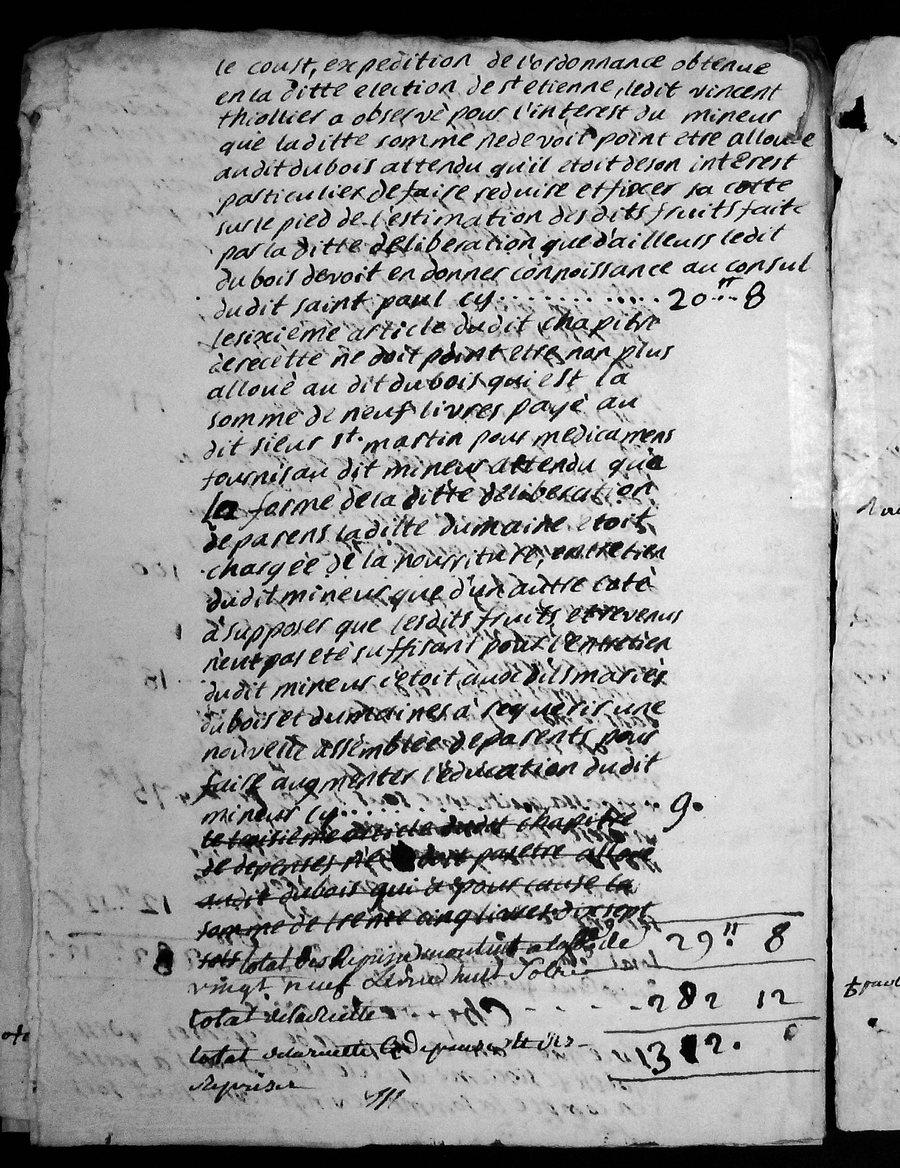 le coust, expedition de l'ordonnance obtenue
en la ditte election de st etienne, ledit vincent
thiollier a observé pour l'interest du mineur
que laditte somme nedevoit point etre allouee
audit dubois attendu qu'il etoit deson interest
particulier de faire reduire et fixer sa cotte
surle pied de l'estimation desdits fruits faite
par la ditte deliberation que d'ailleurs ledit
dubois devoit en donner connoissance au consul
dudit saint paul cy............. 20 ᵗᵗ... 8
lesixiéme article dudit chapitre
derecette ne doit point etre non plus
alloué au dit dubois qui est la
somme de neuf livres payé au
dit sieur st. martin pour medicamens
fournis au dit mineur attendu que
la forme dela ditte deliberation
deparens laditte dumaine etoit
chargée de la nourriture, entretien
dudit mineur que d'un autre coté
à supposer que lesdits fruits et revenus
n'eut pas eté suffisant pour l'entretien
dudit mineur c'etoit aux dits mariés
dubois et dumaines à requerir une
nouvelle assemblée deparents pour
faire augmenter l'education dudit
mineur cy........ 9.
le troisiéme article dudit chapitre
de depenses ne doit pas etre alloué
audit dubois qui a pour cause la
somme de trente cinq livres dix sept
sols total des Reprises de
vingt neuf Livres huit Sols 29 ᵗᵗ. 8
total delarecette - - - - 282 12
total delarecette 1312.
reprises